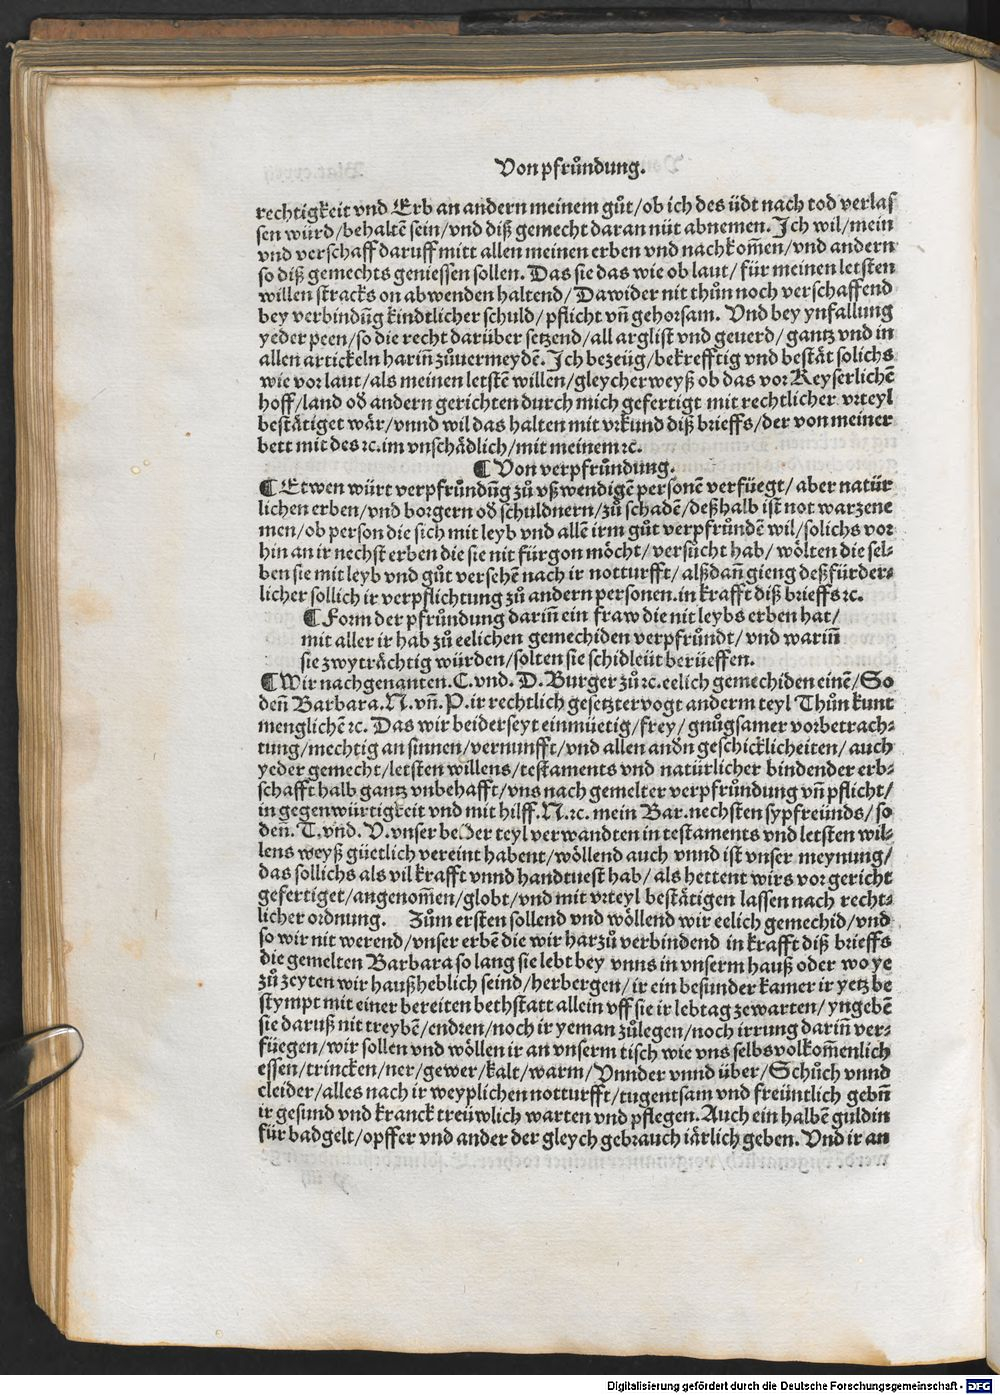 Von pfrůndung.
rechtigkeit vnd Erb an andern meinem gůt/ob ich des üdt nach tod verlas
sen würd/behaltē sein/vnd diß gemecht daran nüt abnemen. Ich wil/mein
vnd verschaff daruff mitt allen meinen erben vnd nachkom̄en/vnd andern
so diß gemechts geniessen sollen. Das sie das wie ob laut/für meinen letsten
willen stracks on abwenden haltend/Dawider nit thůn noch verschaffend
bey verbindūg kindtlicher schuld/pflicht vn̄ gehorsam. Vnd bey ynfallung
yeder peen/so die recht darüber setzend/all arglist vnd geuerd/gantz vnd in
allen artickeln harin̄ zůuermeydē. Ich bezeüg/bekrefftig vnd bestät solichs
wie vor laut/als meinen letstē willen/gleycherweyß ob das vor Keyserlichē
hoff/land od̄ andern gerichten durch mich gefertigt mit rechtlicher vrteyl
bestätiget wär/vnnd wil das halten mit vrkund diß brieffs/der von meiner
bett mit des ꝛc. im vnschädlich/mit meinem ꝛc.
¶ Von verpfrůndung.
¶ Etwen würt verpfrůndūg zů vßwendigē personē verfüegt/aber natür
lichen erben/vnd borgern od̄ schuldnern/zů schadē/deßhalb ist not warzene
men/ob person die sich mit leyb vnd allē irm gůt verpfrůndē wil/solichs vor
hin an ir nechst erben die sie nit fürgon möcht/versůcht hab/wölten die sel⸗
ben sie mit leyb vnd gůt versehē nach ir notturfft/alßdan̄ gieng deßfürder⸗
licher sollich ir verpflichtung zů andern personen. in krafft diß brieffs ꝛc.
¶ Form der pfrůndung darin̄ ein fraw die nit leybs erben hat/
mit aller ir hab zů eelichen gemechiden verpfrůndt/vnd warin̄
sie zwyträchtig würden/solten sie schidleüt berüeffen.
¶ Wir nachgenanten. C. vnd. D. Burger zů ꝛc. eelich gemechiden einē/So
den̄ Barbara. N. vn̄. P. ir rechtlich gesetzter vogt anderm teyl Thůn kunt
menglichē ꝛc. Das wir beiderseyt einmüetig/frey/gnůgsamer vorbetrach⸗
tung/mechtig an sinnen/vernunfft/vnd allen and̄n geschicklicheiten/auch
yeder gemecht/letsten willens/testaments vnd natürlicher bindender erb⸗
schafft halb gantz vnbehafft/vns nach gemelter verpfründung vn̄ pflicht/
in gegenwürtigkeit vnd mit hilff. N. ꝛc. mein Bar. nechsten sypfreünds/so
den̄. T. vnd. V. vnser beder teyl verwandten in testaments vnd letsten wil⸗
lens weyß güetlich vereint habent/wöllend auch vnnd ist vnser meynung/
das sollichs als vil krafft vnnd handtuest hab/als hettent wirs vor gericht
gefertiget/angenom̄en/globt/vnd mit vrteyl bestätigen lassen nach recht⸗
licher ordnung. Zům ersten sollend vnd wöllend wir eelich gemechid/vnd
so wir nit werend/vnser erbē die wir harzů verbindend in krafft diß brieffs
die gemelten Barbara so lang sie lebt bey vnns in vnserm hauß oder wo ye
zů zeyten wir haußheblich seind/herbergen/ir ein besunder kamer ir yetz be
stympt mit einer bereiten bethstatt allein vff sie ir lebtag zewarten/yngebē
sie daruß nit treybē/endren/noch ir yeman zůlegen/noch irrung darin̄ ver⸗
füegen/wir sollen vnd wöllen ir an vnserm tisch wie vns selbs volkom̄enlich
essen/trincken/ner/gewer/kalt/warm/Vnnder vnnd über/Schůch vnnd
cleider/alles nach ir weyplichen notturfft/tugentsam vnd freüntlich gebn̄
ir gesund vnd kranck treüwlich warten vnd pflegen. Auch ein halbē guldin
für badgelt/opffer vnd ander der gleych gebrauch iärlich geben. Vnd ir an
Digitalisierung gefördert durch die Deutsche Forschungsgemeinschaft - DFG